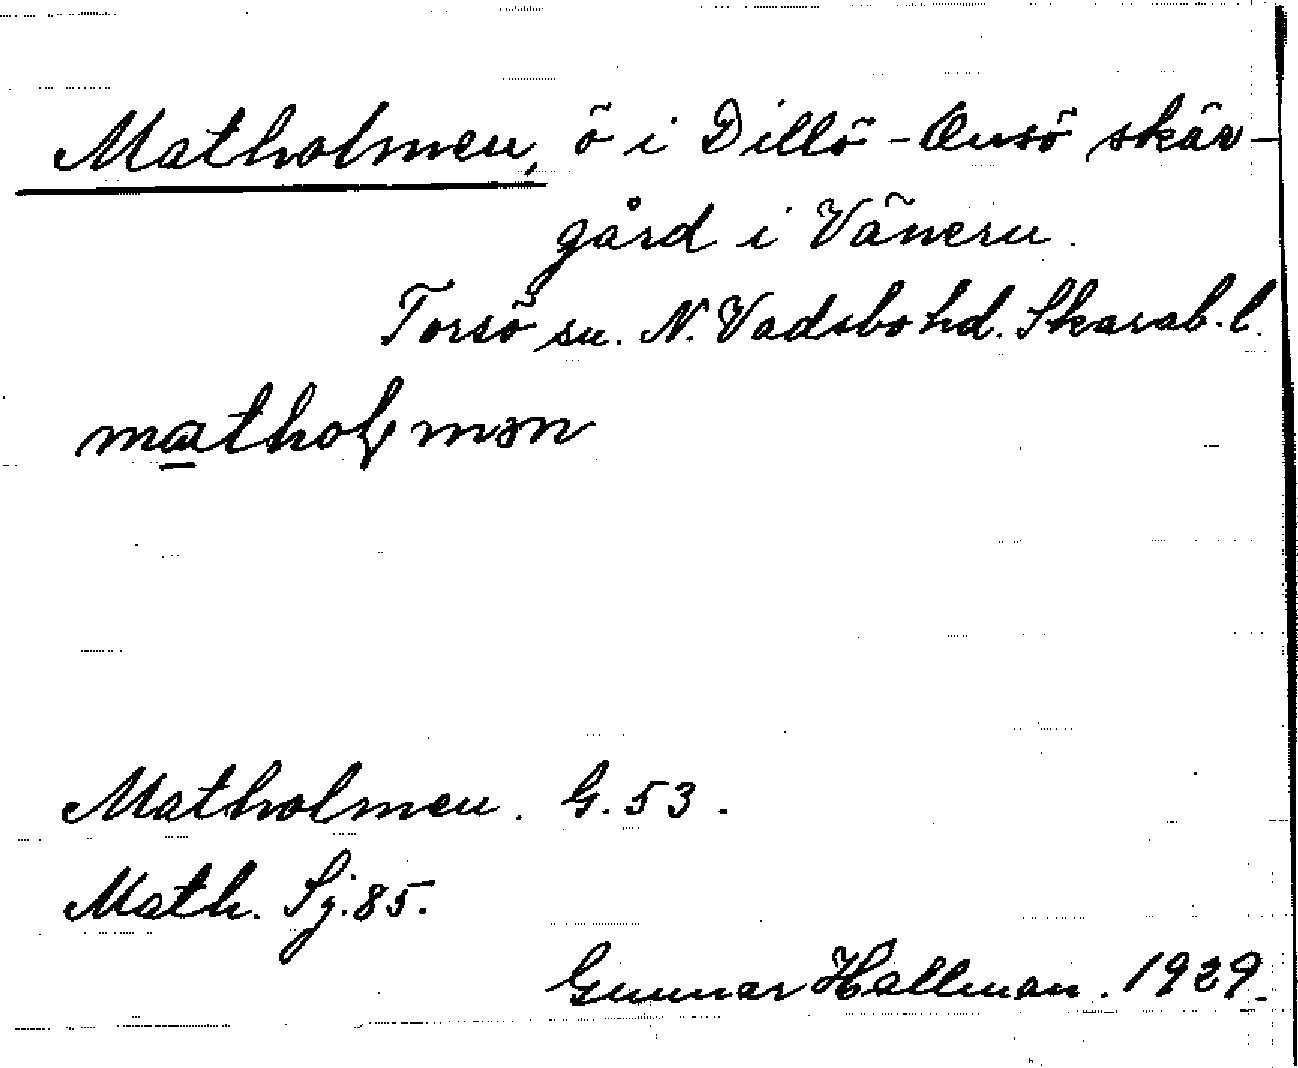 Matholmen, ö i Dillö-Onsö skär-
gård i Vänern.
Torsö sn. N. Vadsbo hd. Skarab. l.
mathoɫmən
Matholmen. G. 53.
Math. Sj. 85.
Gunnar Hallman. 1929.